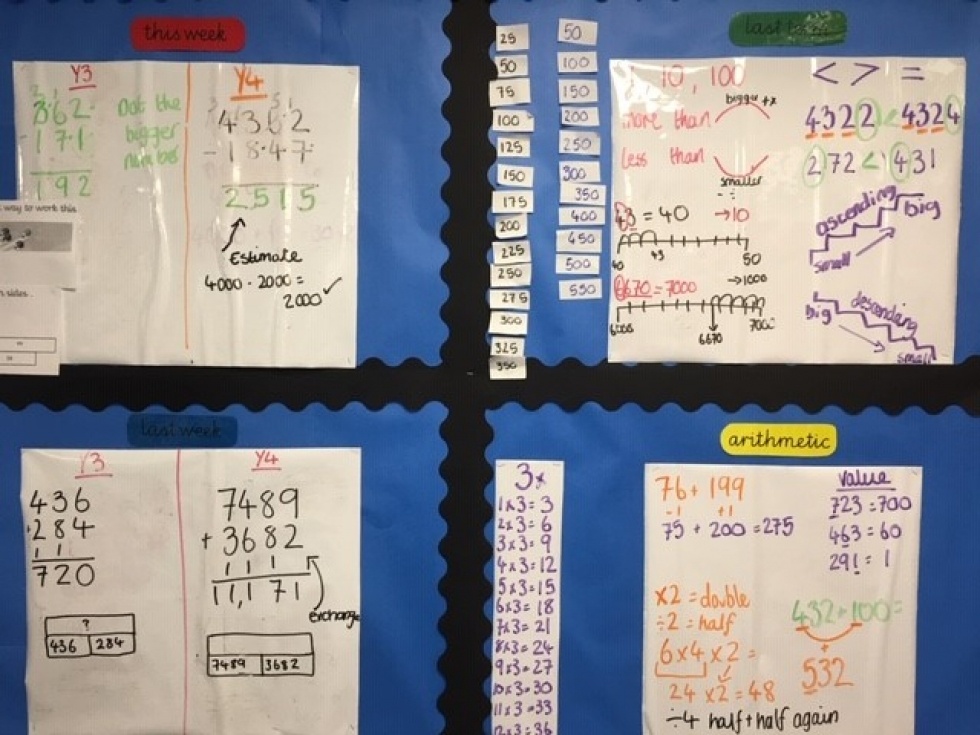 this week
Y3
362
- 171
192
Dot the
bigger
number
Y4
4362
- 1847
2515
Estimate
4000 - 2000 =
2000 ✓
way to work this
sides.
last
25
50
75
100
125
150
175
200
225
250
275
300
325
350
50
100
150
200
250
300
350
400
450
500
550
1, 10, 100
bigger + x
more than
less than
smaller
- ÷
43 = 40 → 10
40 43 50
→ 1000
6670 = 7000
6000 6670 7000
< > =
4322 < 4324
272 < 431
ascending
big
small
big
descending
small
last week
Y3
436
+284
1 1
720
?
436 284
Y4
7489
+ 3682
1 1 1
11,171
exchange
7489 3682
arithmetic
3x
1x3=3
2x3=6
3x3=9
4x3=12
5x3=15
6x3=18
7x3=21
8x3=24
9x3=27
10x3=30
11x3=33
12x3=36
76 + 199
-1 +1
75 + 200 = 275
value
723 = 700
463 = 60
291 = 1
x2 = double
÷2 = half
6 x 4 x 2 =
24 x 2 = 48
÷4 half + half again
432 + 100 =
+
532